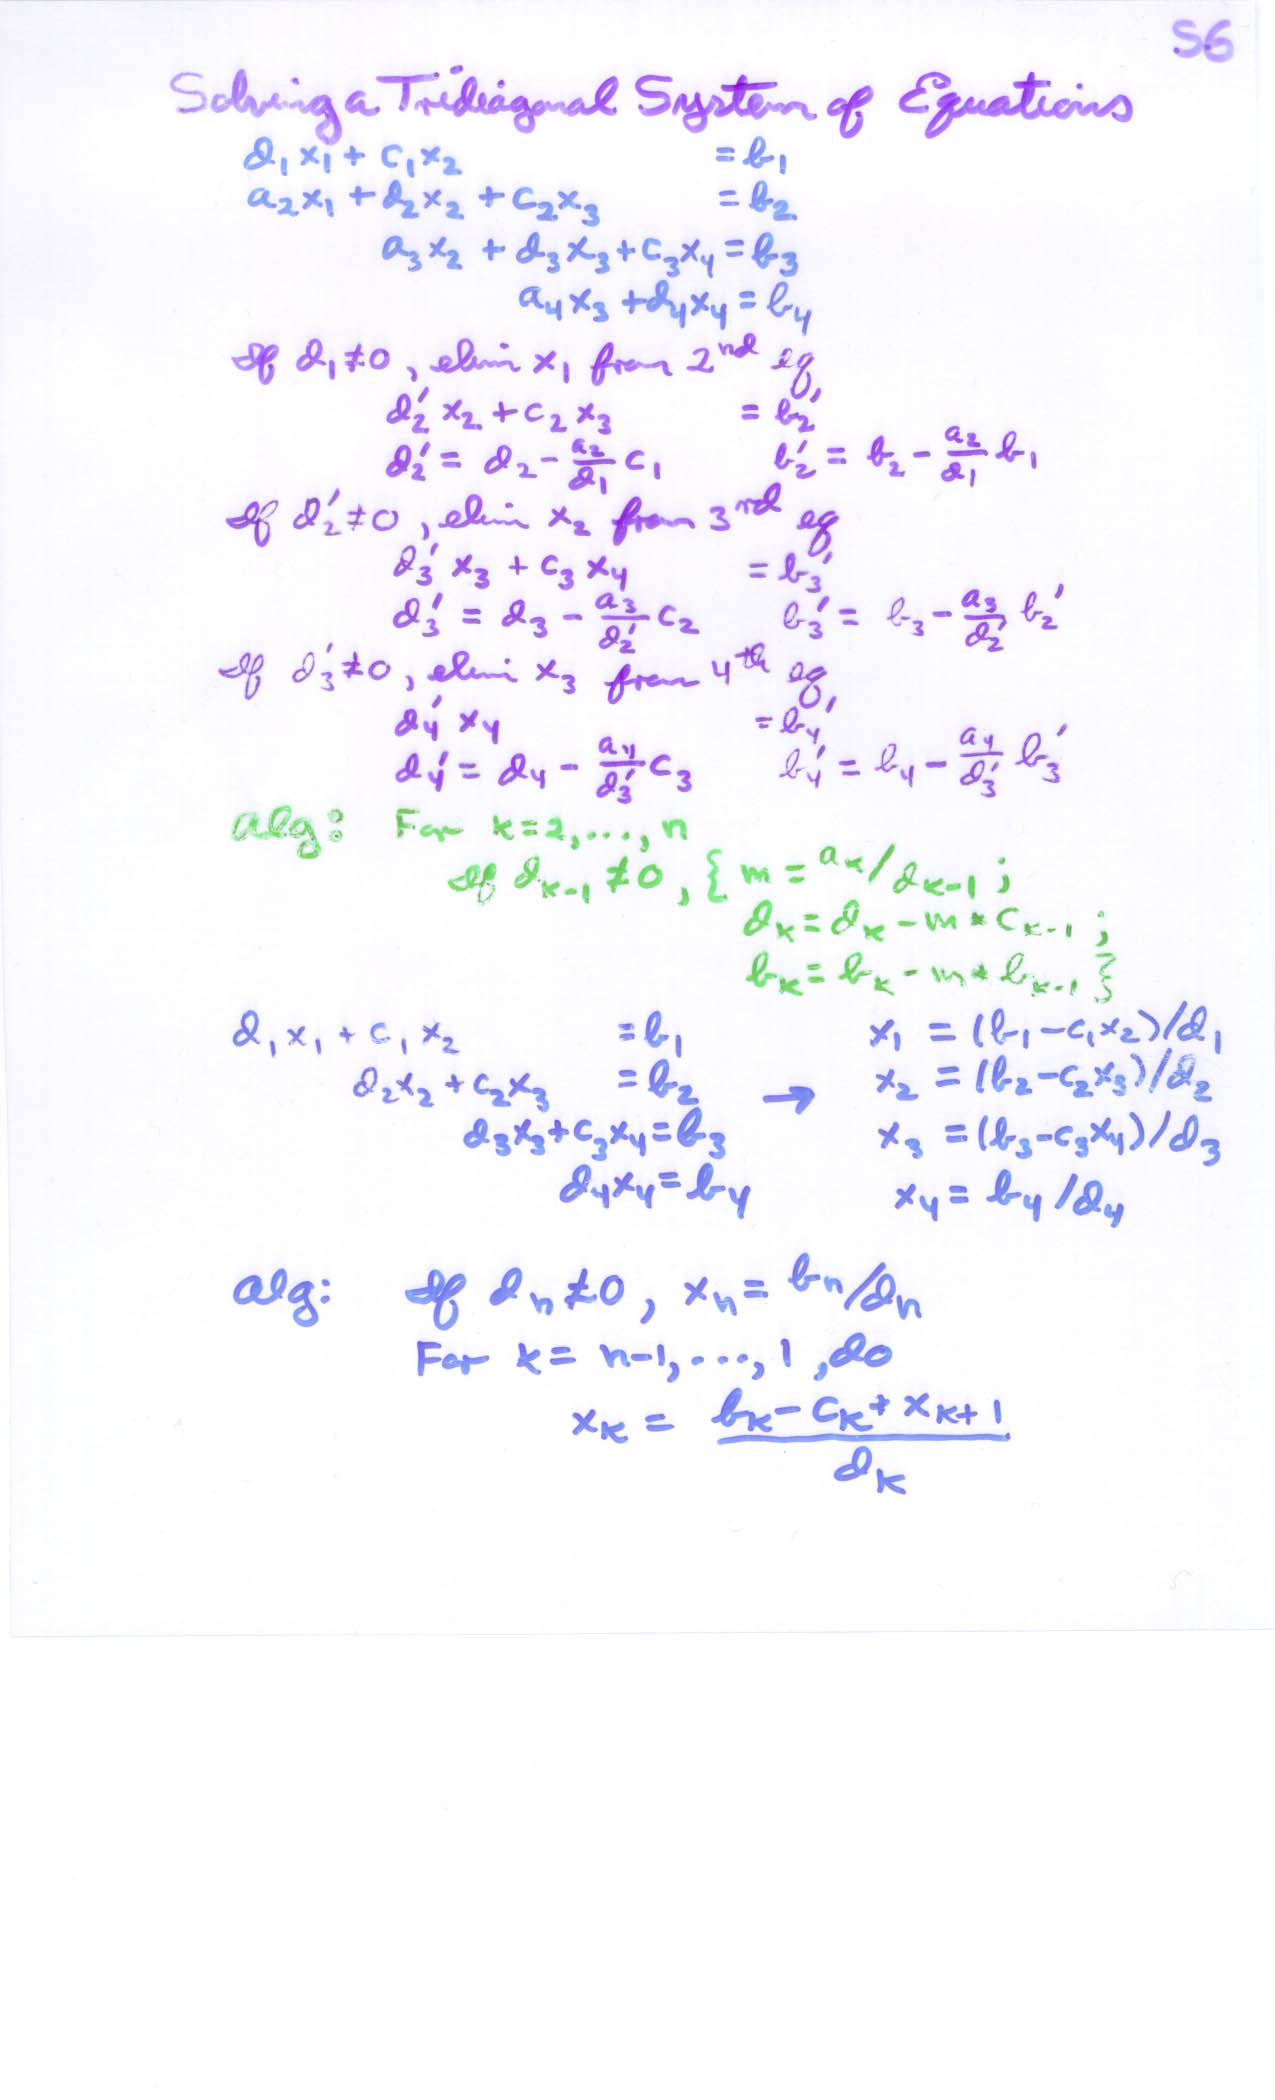 S6
Solving a Tridiagonal System of Equations
d₁x₁ + c₁x₂ = b₁
a₂x₁ + d₂x₂ + c₂x₃ = b₂
a₃x₂ + d₃x₃ + c₃x₄ = b₃
a₄x₃ + d₄x₄ = b₄
If d₁≠0, elim x₁ from 2nd eq,
d₂′ x₂ + c₂ x₃ = b₂′
d₂′ = d₂ - a₂/d₁ c₁ b₂′ = b₂ - a₂/d₁ b₁
If d₂′≠0, elim x₂ from 3rd eq,
d₃′ x₃ + c₃ x₄ = b₃′
d₃′ = d₃ - a₃/d₂′ c₂ b₃′ = b₃ - a₃/d₂′ b₂′
If d₃′≠0, elim x₃ from 4th eq,
d₄′ x₄ = b₄′
d₄′ = d₄ - a₄/d₃′ c₃ b₄′ = b₄ - a₄/d₃′ b₃′
alg: For k=2,...,n
If dₖ₋₁ ≠0, { m = aₖ/dₖ₋₁ ;
dₖ = dₖ - m * cₖ₋₁ ;
bₖ = bₖ - m * bₖ₋₁ }
d₁x₁ + c₁x₂ = b₁ x₁ = (b₁-c₁x₂)/d₁
d₂x₂ + c₂x₃ = b₂ → x₂ = (b₂-c₂x₃)/d₂
d₃x₃+c₃x₄=b₃ x₃ = (b₃-c₃x₄)/d₃
d₄x₄=b₄ x₄ = b₄/d₄
alg: If dₙ≠0, xₙ= bₙ/dₙ
For k= n-1,...,1, do
xₖ = bₖ - cₖ * xₖ₊₁
dₖ